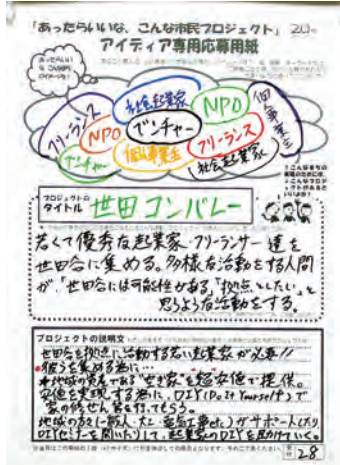 「あったらいいな、こんな市民プロジェクト」
アイディア専用応募用紙
社会起業家
NPO
個人事業主
フリーランス
NPO
ベンチャー
フリーランス
ベンチャー
個人事業主
社会起業家
プロジェクトの
タイトル 世田コンバレー
若くて優秀な起業家・フリーランサー達を
世田谷に集める。多様な活動をする人間
が、「世田谷には可能性がある」「拠点としたい」と
思うような活動をする。
プロジェクトの説明文
世田谷を拠点に活動する若い起業家が必要!!
彼らを集める為に…
*地域の資産である"空き家"を超安価で提供。
安価を実現する為に、DIY(Do It Yourself)で
家の修ぜん等を行ってもらう。
地域の方々(一般人・大工・電気工事etc)がサポートしたり
DIYセミナーを開いたりして、起業家のDIYを助けていく。
28